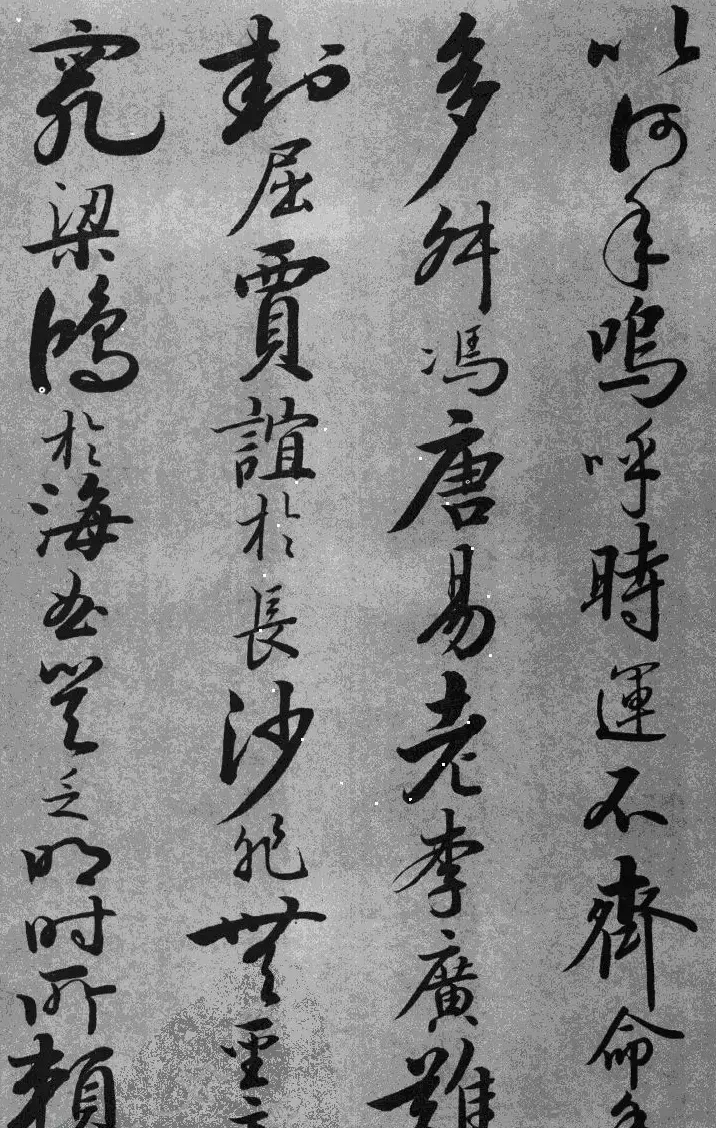 以何年嗚呼時運不齊命多
多舛馮唐易老李廣難
封屈賈誼於長沙非無聖主
竄梁鴻於海曲豈乏明時所賴